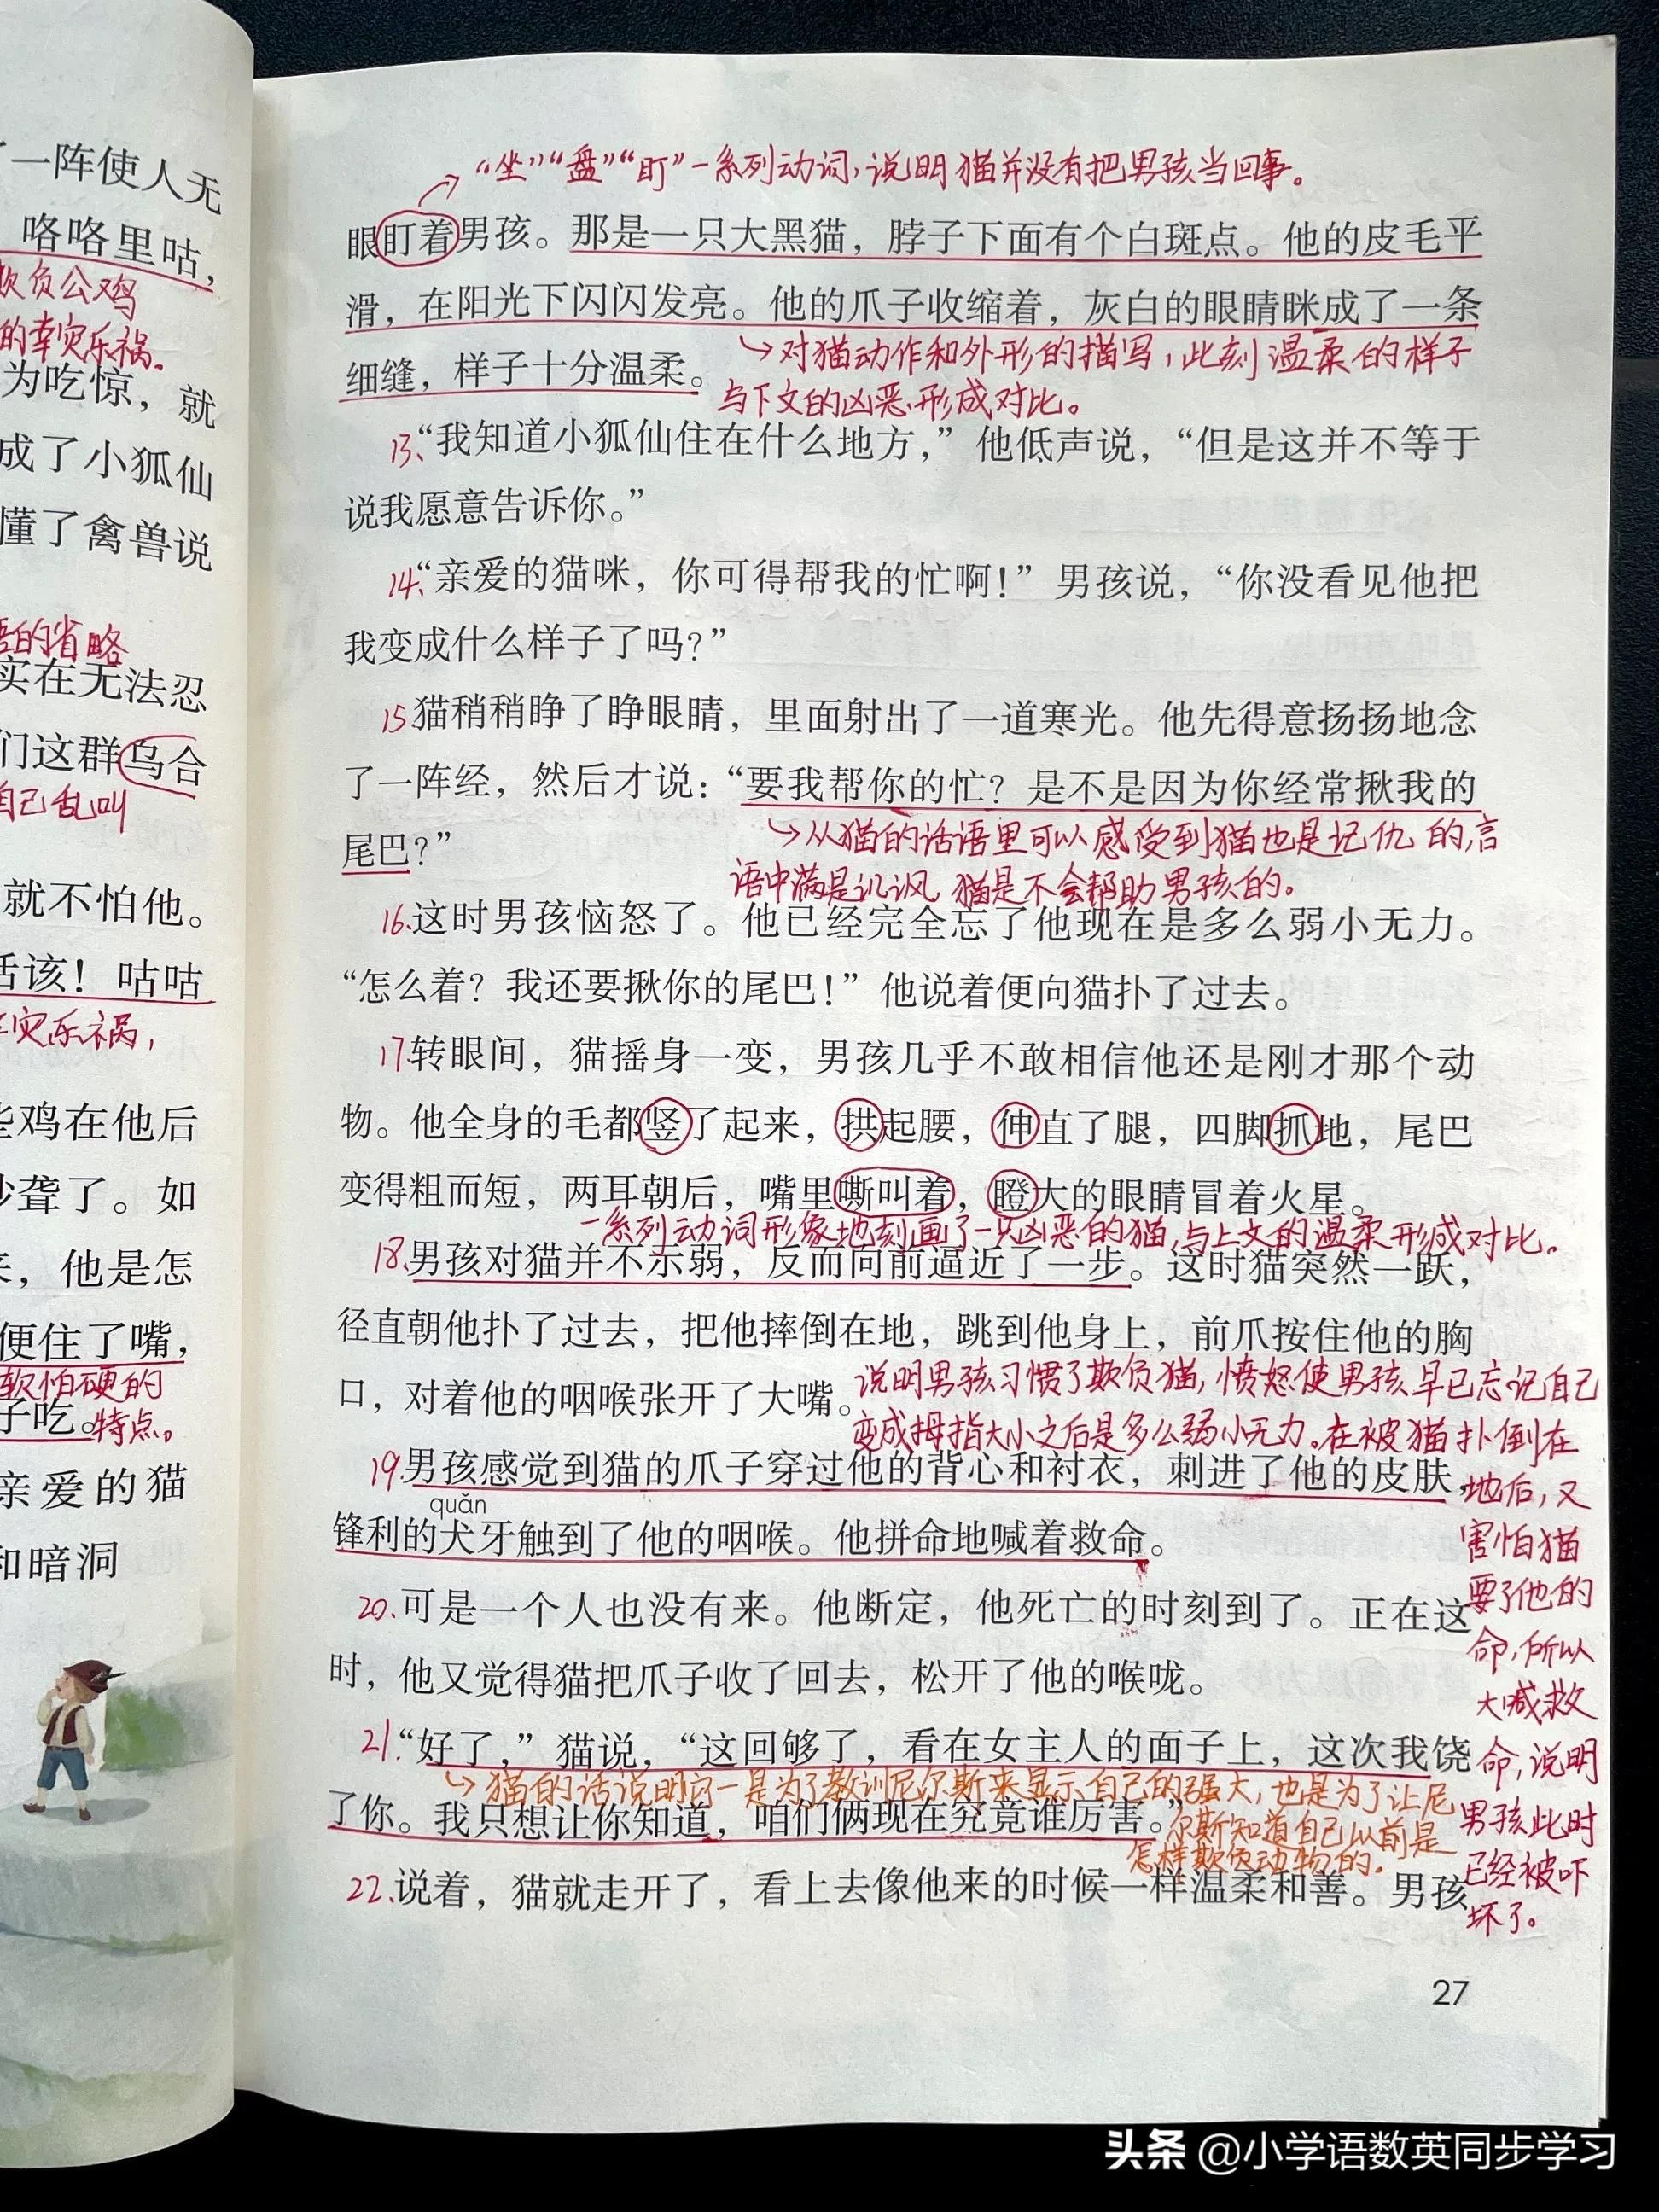 一阵使人无
咯咯里咕，
欺负公鸡
的幸灾乐祸。
为吃惊，就
成了小狐仙
懂了禽兽说
语的省略
实在无法忍
们这群乌合
自己乱叫
就不怕他。
活该！咕咕
幸灾乐祸，
些鸡在他后
吵聋了。如
来，他是怎
便住了嘴，
软怕硬的
子吃。特点。
亲爱的猫
和暗洞
“坐”“盘”“盯”一系列动词，说明猫并没有把男孩当回事。
眼盯着男孩。那是一只大黑猫，脖子下面有个白斑点。他的皮毛平
滑，在阳光下闪闪发亮。他的爪子收缩着，灰白的眼睛眯成了一条
细缝，样子十分温柔。
对猫动作和外形的描写，此刻温柔的样子
与下文的凶恶形成对比。
13、“我知道小狐仙住在什么地方，”他低声说，“但是这并不等于
说我愿意告诉你。”
14、“亲爱的猫咪，你可得帮我的忙啊！”男孩说，“你没看见他把
我变成什么样子了吗？”
15猫稍稍睁了睁眼睛，里面射出了一道寒光。他先得意扬扬地念
了一阵经，然后才说：“要我帮你的忙？是不是因为你经常揪我的
尾巴？”
从猫的话语里可以感受到猫也是记仇的，言
语中满是讥讽，猫是不会帮助男孩的。
16.这时男孩恼怒了。他已经完全忘了他现在是多么弱小无力。
“怎么着？我还要揪你的尾巴！”他说着便向猫扑了过去。
17.转眼间，猫摇身一变，男孩几乎不敢相信他还是刚才那个动
物。他全身的毛都竖了起来，拱起腰，伸直了腿，四脚抓地，尾巴
变得粗而短，两耳朝后，嘴里嘶叫着，瞪大的眼睛冒着火星。
一系列动词形象地刻画了一只凶恶的猫，与上文的温柔形成对比。
18.男孩对猫并不示弱，反而向前逼近了一步。这时猫突然一跃，
径直朝他扑了过去，把他摔倒在地，跳到他身上，前爪按住他的胸
口，对着他的咽喉张开了大嘴。
说明男孩习惯了欺负猫，愤怒使男孩早已忘记自己
变成拇指大小之后是多么弱小无力。在被猫扑倒在
地后，又
害怕猫
要了他的
命，所以
大喊救
命，说明
男孩此时
已经被吓
坏了。
19.男孩感觉到猫的爪子穿过他的背心和衬衣，刺进了他的皮肤，
quǎn
锋利的犬牙触到了他的咽喉。他拼命地喊着救命。
20.可是一个人也没有来。他断定，他死亡的时刻到了。正在这
时，他又觉得猫把爪子收了回去，松开了他的喉咙。
21.“好了，”猫说，“这回够了，看在女主人的面子上，这次我饶
猫的话说明它一是为了教训尼尔斯来显示自己的强大，也是为了让尼
了你。我只想让你知道，咱们俩现在究竟谁厉害。”
尔斯知道自己以前是
怎样欺负动物的。
22.说着，猫就走开了，看上去像他来的时候一样温柔和善。男孩
27
头条 @小学语数英同步学习